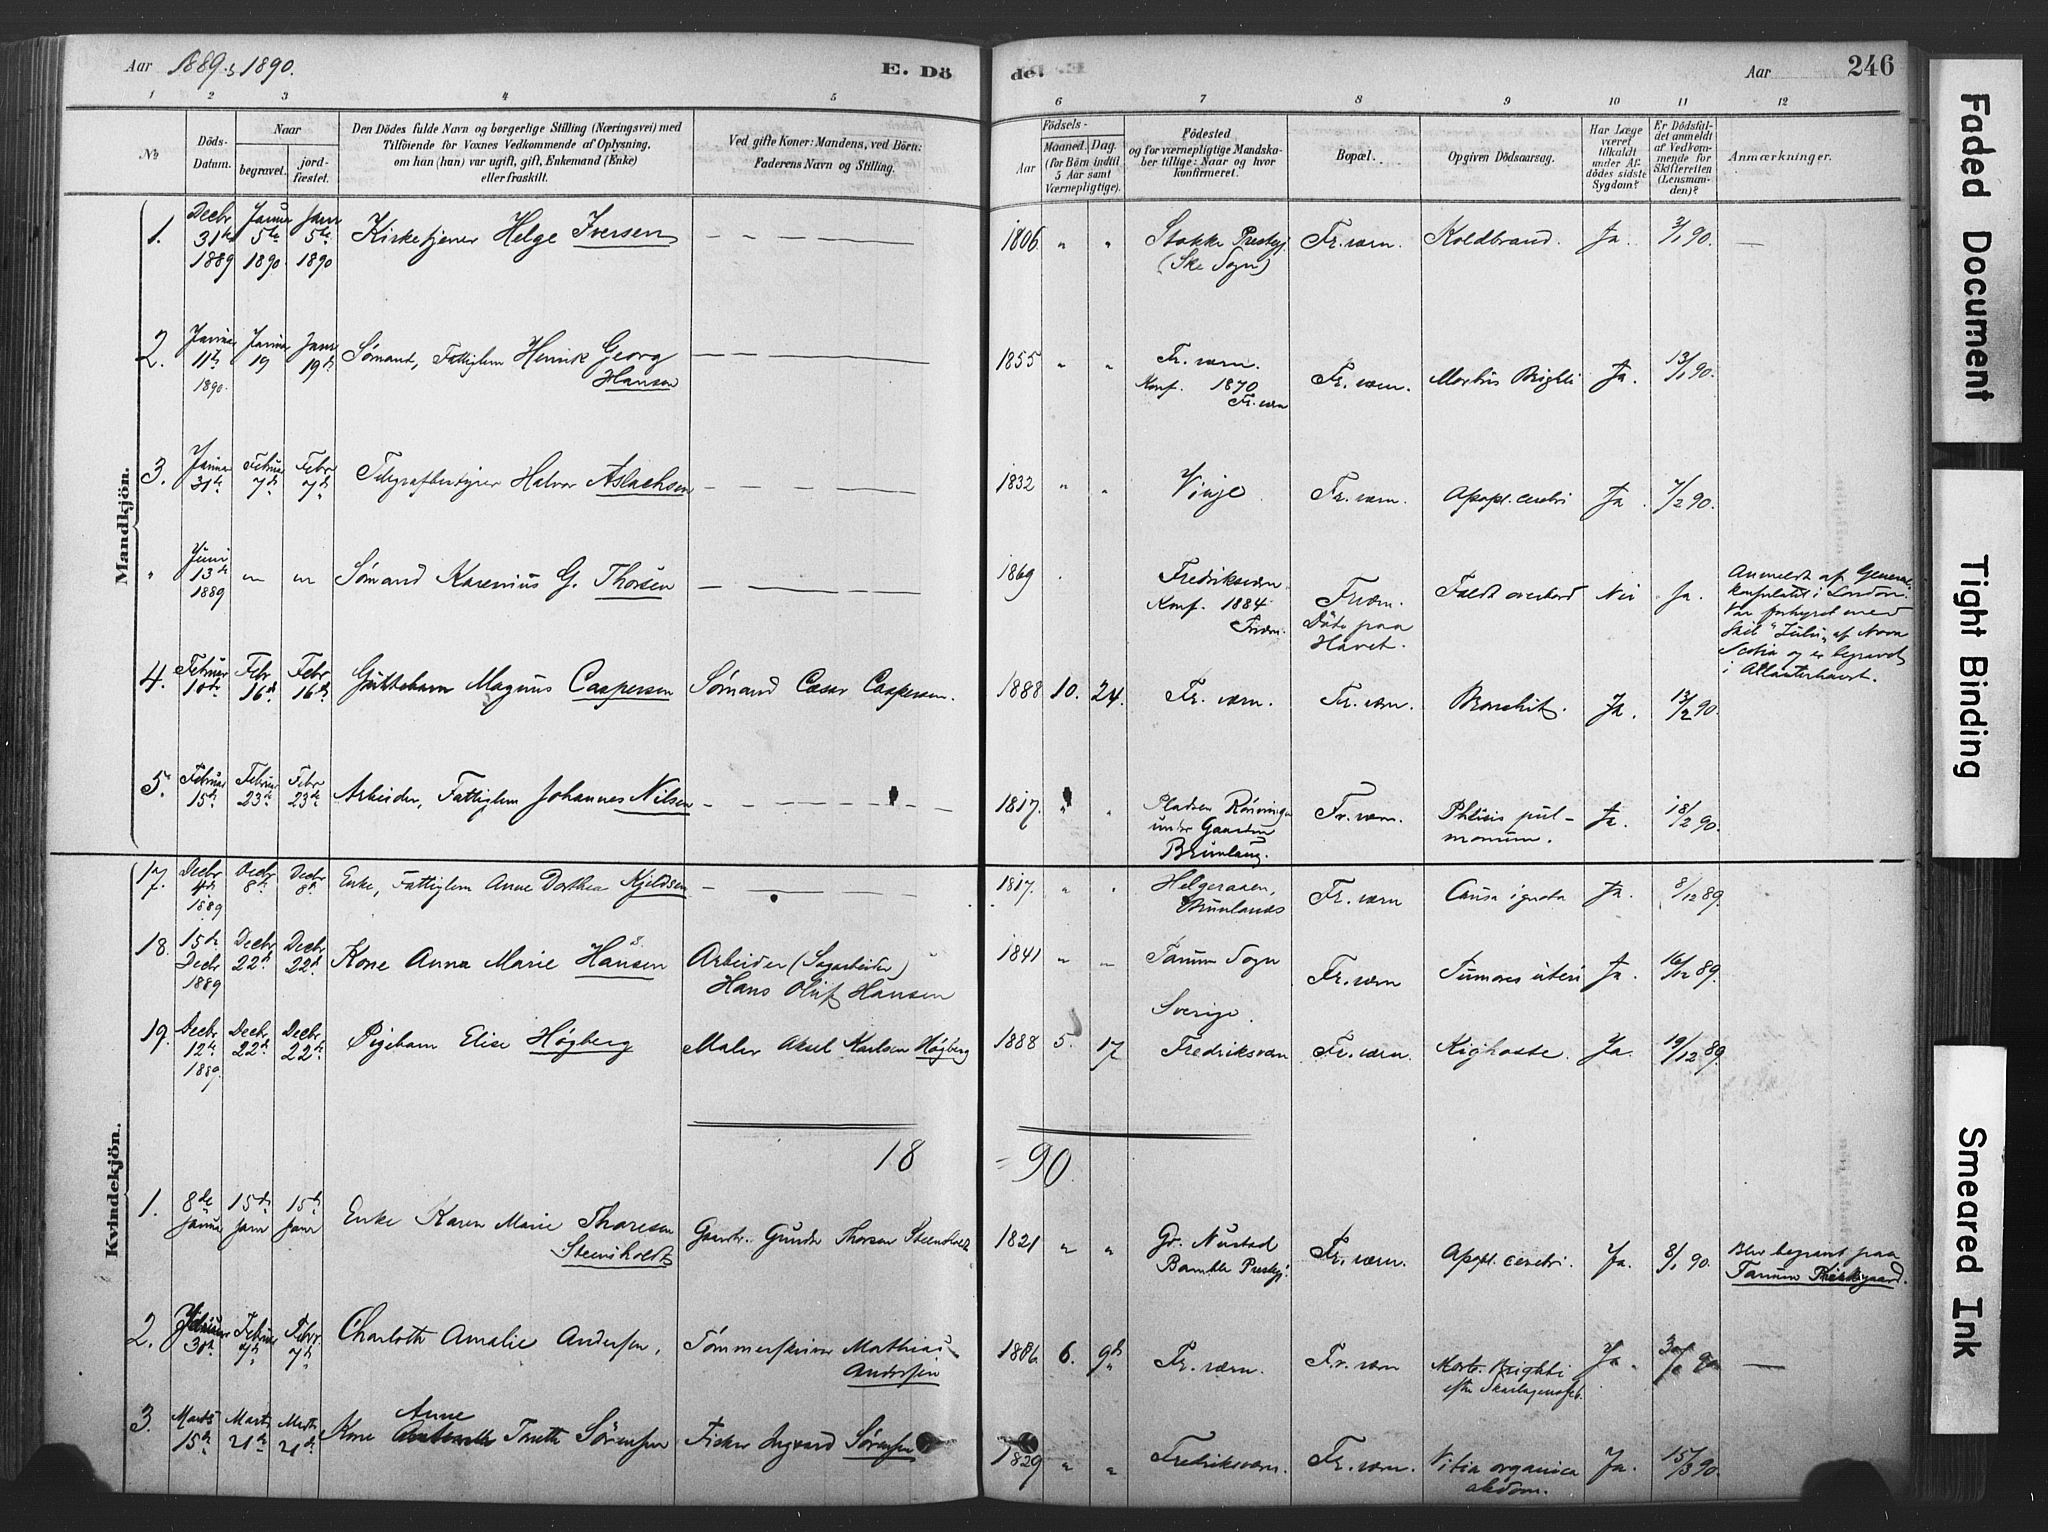 Aar 1889 & 1890. E. Dö de. Aar 246
1 2 3 4 5 6 7 8 9 10 11 12
No
Döds-Datum.
Naar
begravet.
jord-fæstet.
Den Dödes fulde Navn og borgerlige Stilling (Næringsvei) med
Tilföiende for Voxnes Vedkommende af Oplysning,
om han (hun) var ugift, gift, Enkemand (Enke)
eller fraskilt.
Ved gifte Koner: Mandens, ved Börn:
Faderens Navn og Stilling.
Födsels-
Aar
Maaned. Dag.
(for Börn indtil
5 Aar samt
Værnepligtige).
Födested
og for værnepligtige Mandska-
ber tillige: Naar og hvor
konfirmeret.
Bopæl.
Opgiven Dödsaarsag.
Har Læge
været
tilkaldt
under Af-
dödes sidste
Sygdom?
Er Dödsfal-
det anmeldt
af Vedkom-
mende for
Skifteretten
(Lensman-
den)?
Anmærkninger.
Mandkjön.
1. Decbr 31te 1889 Januar 5te 1890 Janr 5te 1890 Kirketjener Helge Iversen 1806 " " Stokke Prestgj (Ske Sogn) Fr.værn. Koldbrand. Ja. 3/1 90. —
2. Januar 11te 1890. Januar 19 Janr 19de Sømand, Fattiglem Henrik Georg Hansen 1855 " " Fr. værn. Konf. 1870 Fr. værn Fr. værn. Morbus Brightii Ja. 13/1 90.
3. Januar 31te Februar 7de Febr 7de Telegrafbestyrer Halvor Aslachsen 1832 " " Vinje. Fr. værn. Apopl. cerebri Ja. 7/2 90.
" Juni 13de 1889 " " Sømand Karenius G. Thorsen 1869 Fredriksværn Konf. 1884 Frværn. Frværn. Döde paa Havet. Faldt overbord Nei Ja. Anmeldt af General-
konsulatet i London.
Var forhyret med
Skib "Zulu" af Nova
Scotia og er begravet
i Atlanterhavet.
4. Februar 10de Febr 16de Febr 16de Guttebarn Magnus Caspersen Sømand Cæsar Caspersen. 1888 10. 24. Fr. værn. Fr. værn. Bronchit. Ja. 13/2 90.
5. Februar 15de Februar 23de Febr 23de Arbeider, Fattiglem Johannes Nilsen 1817. " " Pladsen Rönningen under Gaarden Brunlaug. Fr. værn. Phtisis pul-
monum. Ja. 18/2 90.
Kvindekjön.
17. Decbr 4de 1889 Decbr 8de Decbr 8de Enke, Fattiglem Anne Dorthea Kjeldsen 1817. " " Helgeraaen, Brunlanæs Fr. værn Causa ignota Ja. 8/12 89.
18. 15de Decbr 1889 Decbr 22de Decbr 22de Kone Anna Marie Hansen Arbeider (Sagarbeider) Hans Oluf Hansen 1841 " " Tanum Sogn Sverige. Fr. værn Tumores uteri Ja. 16/12 89.
19. Decbr 12te 1889 Decbr 22de Decbr 22de Pigebarn Elise Högberg Maler Aksel Karlsen Högberg 1888 5. 17 Fredriksværn Fr. værn. Kighoste. Ja. 19/12 89.
18 90
1. 8de Januar 15de Janr 15de Janr Enke Karen Marie Thoresen Steensholdt Gaardbr. Gunder Thorsen Steensholdt 1821 " " Gr. Nustad Bamble Prestgj. Fr. værn. Apopl. cerebri. Ja. 8/1 90. Blev begravet paa
Tanum Kirkegaard.
2. Januar 30te Februar 7de Febr 7de Charlotte Amalie Andersen, Tömmerskriver Mathias Andersen 1886. 6. 9de Fr. værn. Fr. værn Morb. Brightii efter Skarlagensfeb. Ja. 30/1 90. —
3. Marts 15de Marts 21de Marts 21de Kone Anne Tonette Sörensen Fisker Ingvard Sörensen 1829 " " Fredriksværn. Fr. værn. Vitia organica abdom. Ja. 15/3 90.
Faded Document
Tight Binding
Smeared Ink